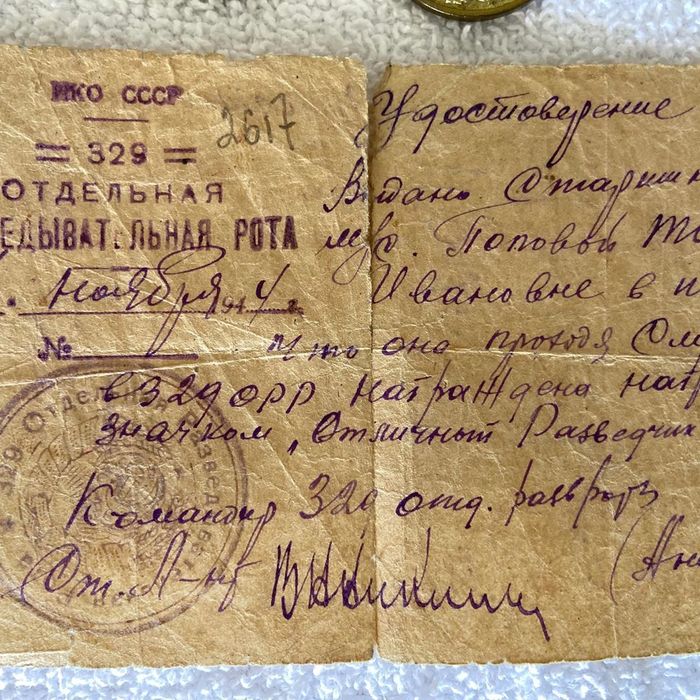 НКО СССР
2617
= 329 =
ОТДЕЛЬНАЯ
ЕДЫВАТЕЛЬНАЯ РОТА
Ноября 1944 г.
№
Удостоверение
Выдано Старшин
м/со. Поповой
Ивановне в
что она проходя
в 329 ОРР награждена наг
значком "Отличный Разведчик
Командир 329 отд. разв роты
Ст. Л-нт
329 Отдельная Разведыват